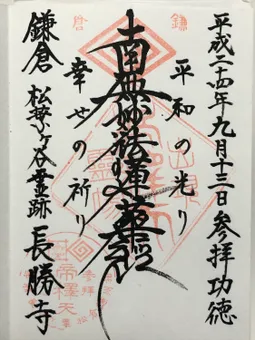 平成二十四年九月十三日参拝功徳
平和の光り
南無妙法蓮華経
幸せの祈り
鎌倉 松葉ヶ谷霊跡 長勝寺
鎌倉
帝釋天